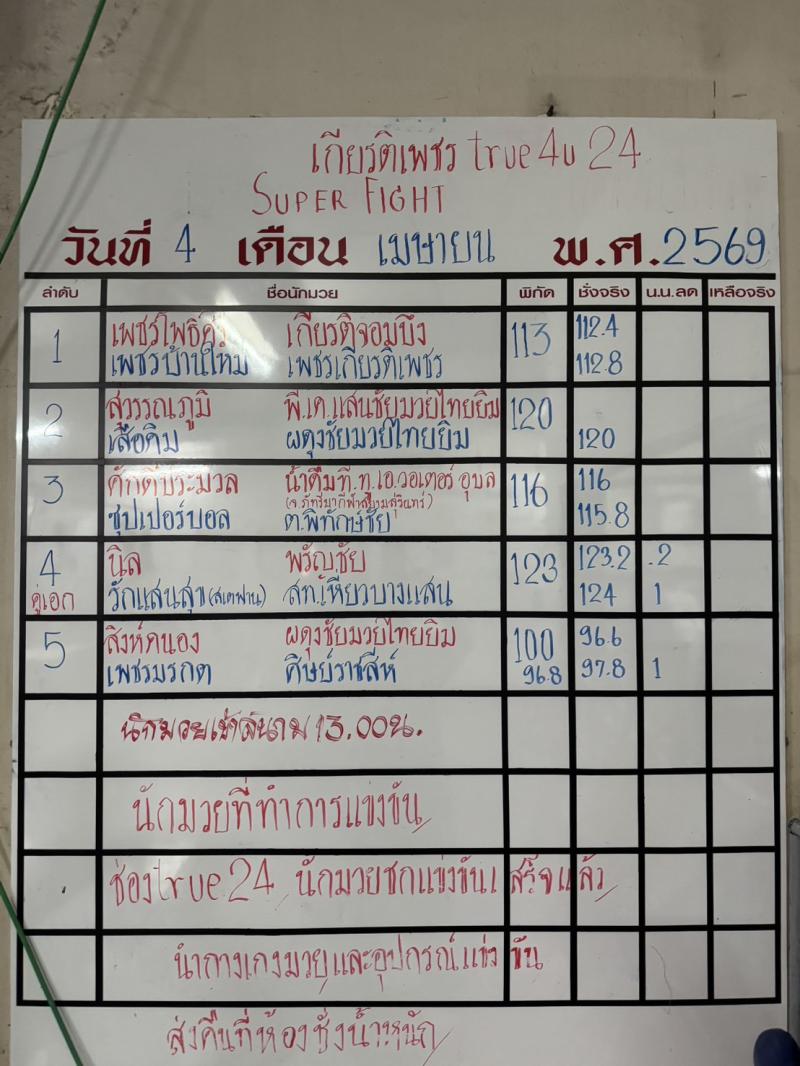 เกียรติเพชร true 4u 24
SUPER FIGHT
วันที่ 4 เดือน เมษายน พ.ศ.2569
ลำดับ ชื่อนักมวย พิกัด ชั่งจริง น.น.ลด เหลือจริง
1 เพชรโพธิ์ศรี เกียรติจอมบึง 113 112.4
เพชรบ้านใหม่ เพชรเกียรติเพชร 112.8
2 สุวรรณภูมิ พี.เค.แสนชัยมวยไทยยิม 120
เสือคิม ผดุงชัยมวยไทยยิม 120
3 ศักดิ์ประมวล น้าติ่มที.ทู.เอ.วอเตอร์ อุบล 116 116
ซุปเปอร์บอล ต.พิทักษ์ชัย 115.8
4 นิล พรัญชัย 123 123.2 .2
คู่เอก รักแสนสุข(สเตฟาน) สท.เหี่ยวบางแสน 124 1
5 สิงห์คนอง ผดุงชัยมวยไทยยิม 100 96.6
เพชรมรกต ศิษย์ราชสีห์ 96.8 97.8 1
นักมวยเข้าสนาม 13.00น.
นักมวยที่ทำการแข่งขัน
ช่องtrue24 นักมวยชกแข่งขันเสร็จแล้ว
นำกางเกงมวยและอุปกรณ์แข่งขัน
ส่งคืนที่ห้องชั่งน้ำหนัก